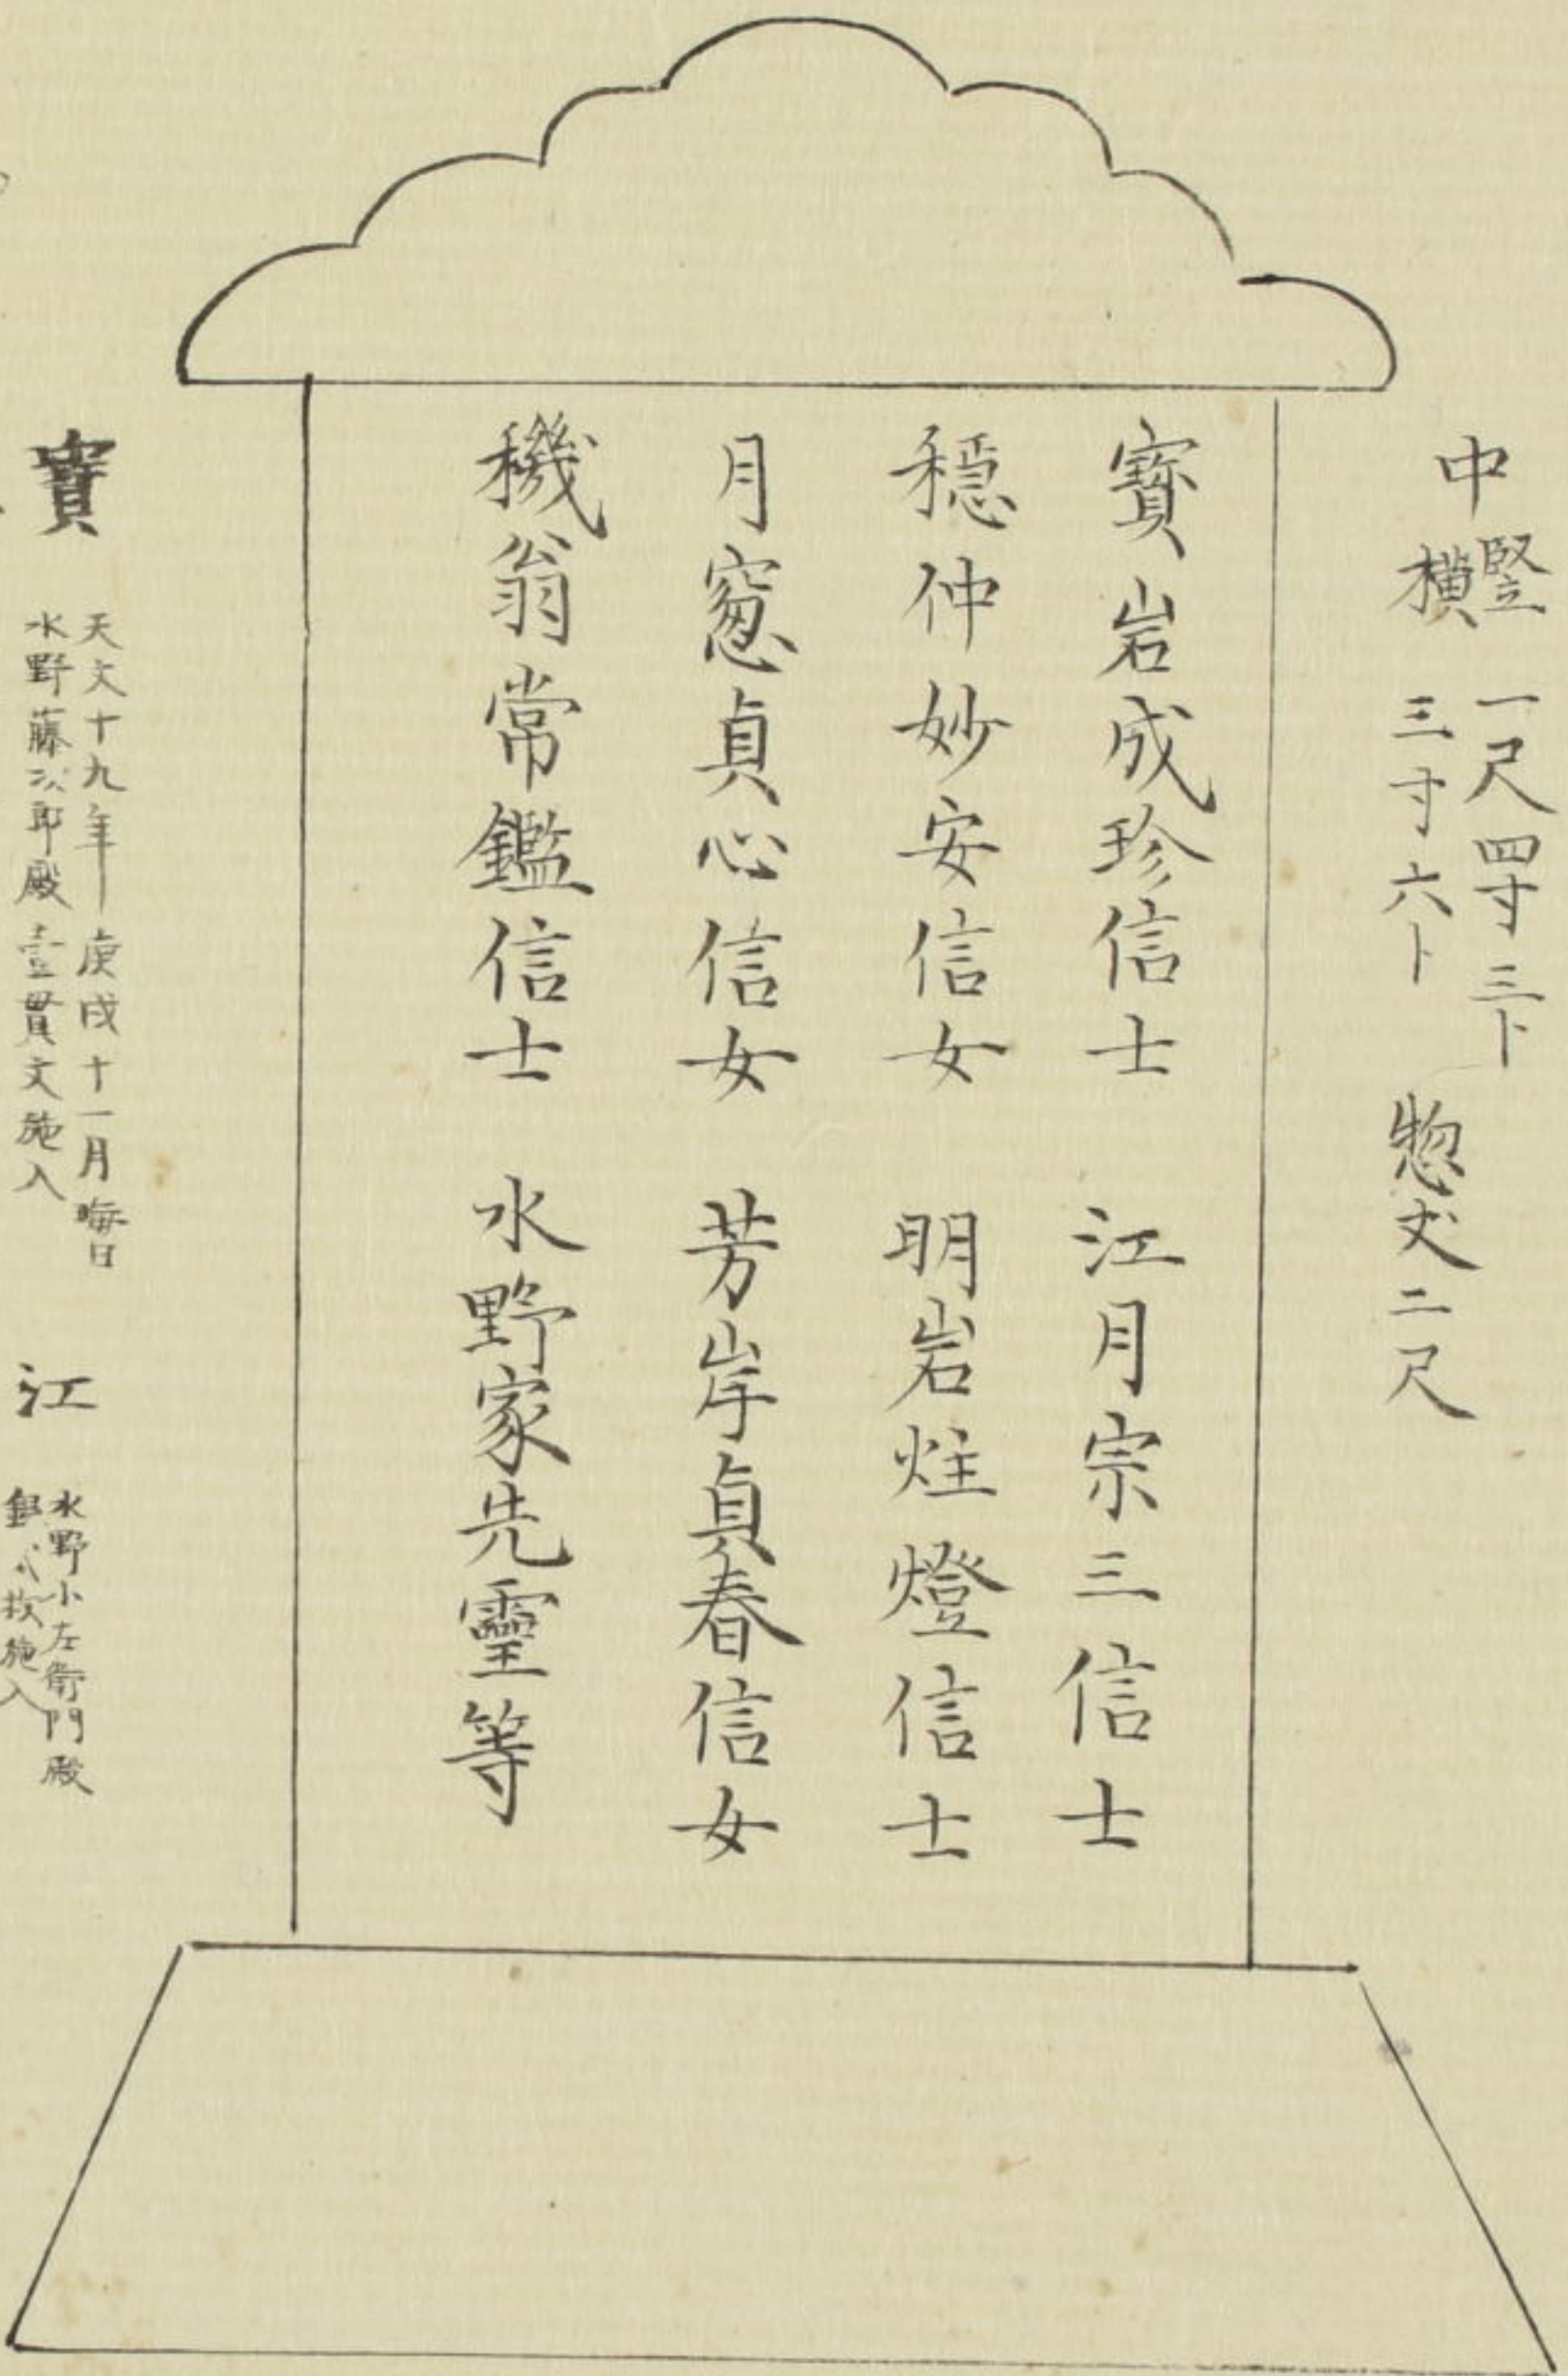 中 竪 一尺四寸三卜
横 三寸六卜 惣丈二尺
寳岩成珍信士 江月宗三信士
穏仲妙安信女 明岩炷燈信士
月窓貞心信女 芳岸貞春信女
機翁常鑑信士 水野家先霊等
寳 天文十九年 庚戌十一月晦日
水野藤次郎殿 壹貫文施入
江 水野小左衛門殿
銀弐枚施入